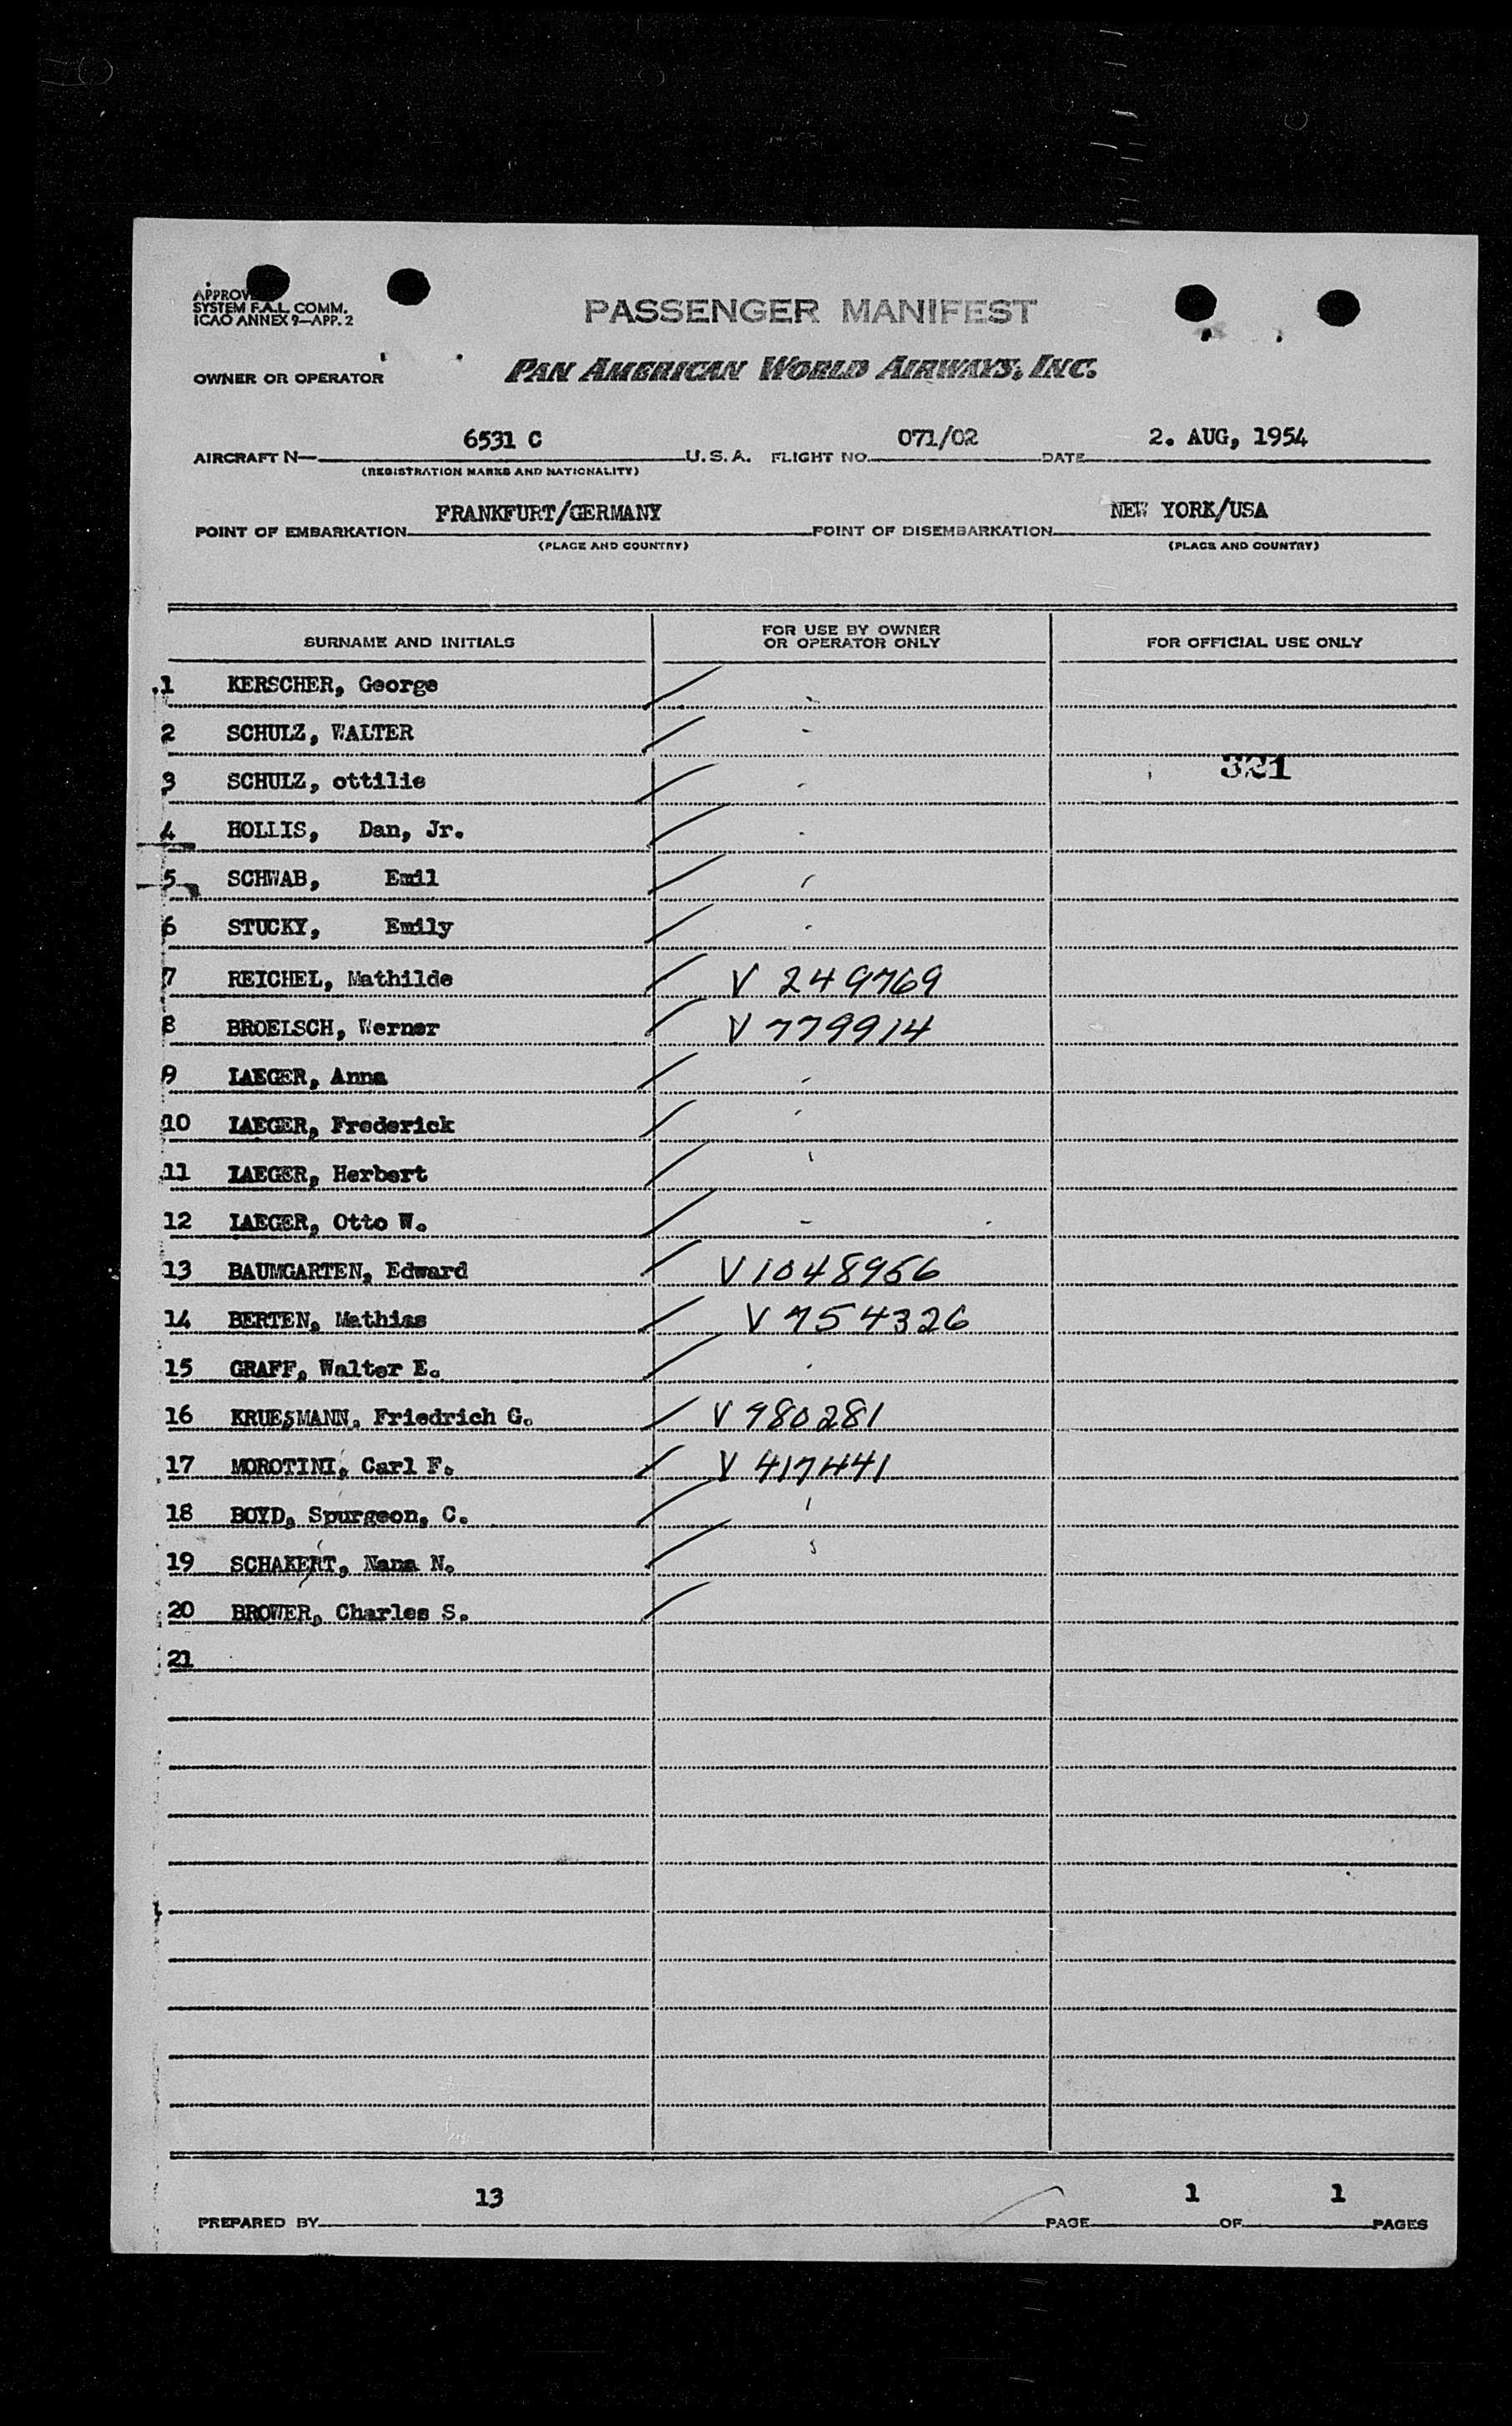 APPROVED
SYSTEM F.A.L. COMM.
ICAO ANNEX 9—APP. 2
PASSENGER MANIFEST
OWNER OR OPERATOR PAN AMERICAN WORLD AIRWAYS, INC.
AIRCRAFT N— 6531 C U.S.A. FLIGHT NO. 071/02 DATE 2. AUG, 1954
(REGISTRATION MARKS AND NATIONALITY)
POINT OF EMBARKATION FRANKFURT/GERMANY POINT OF DISEMBARKATION NEW YORK/USA
(PLACE AND COUNTRY) (PLACE AND COUNTRY)
SURNAME AND INITIALS FOR USE BY OWNER OR OPERATOR ONLY FOR OFFICIAL USE ONLY
1 KERSCHER, George
2 SCHULZ, WALTER
3 SCHULZ, ottilie 321
4 HOLLIS, Dan, Jr.
5 SCHWAB, Emil
6 STUCKY, Emily
7 REICHEL, Mathilde V 249769
8 BROELSCH, Werner V 779914
9 IAEGER, Anna
10 IAEGER, Frederick
11 IAEGER, Herbert
12 IAEGER, Otto W.
13 BAUMGARTEN, Edward V 1048956
14 BERTEN, Mathias V 754326
15 GRAFF, Walter E.
16 KRUESMANN, Friedrich G. V 980281
17 MOROTINI, Carl F. V 417441
18 BOYD, Spurgeon, C.
19 SCHAKERT, Nana N.
20 BROWER, Charles S.
21
PREPARED BY 13 PAGE 1 OF 1 PAGES